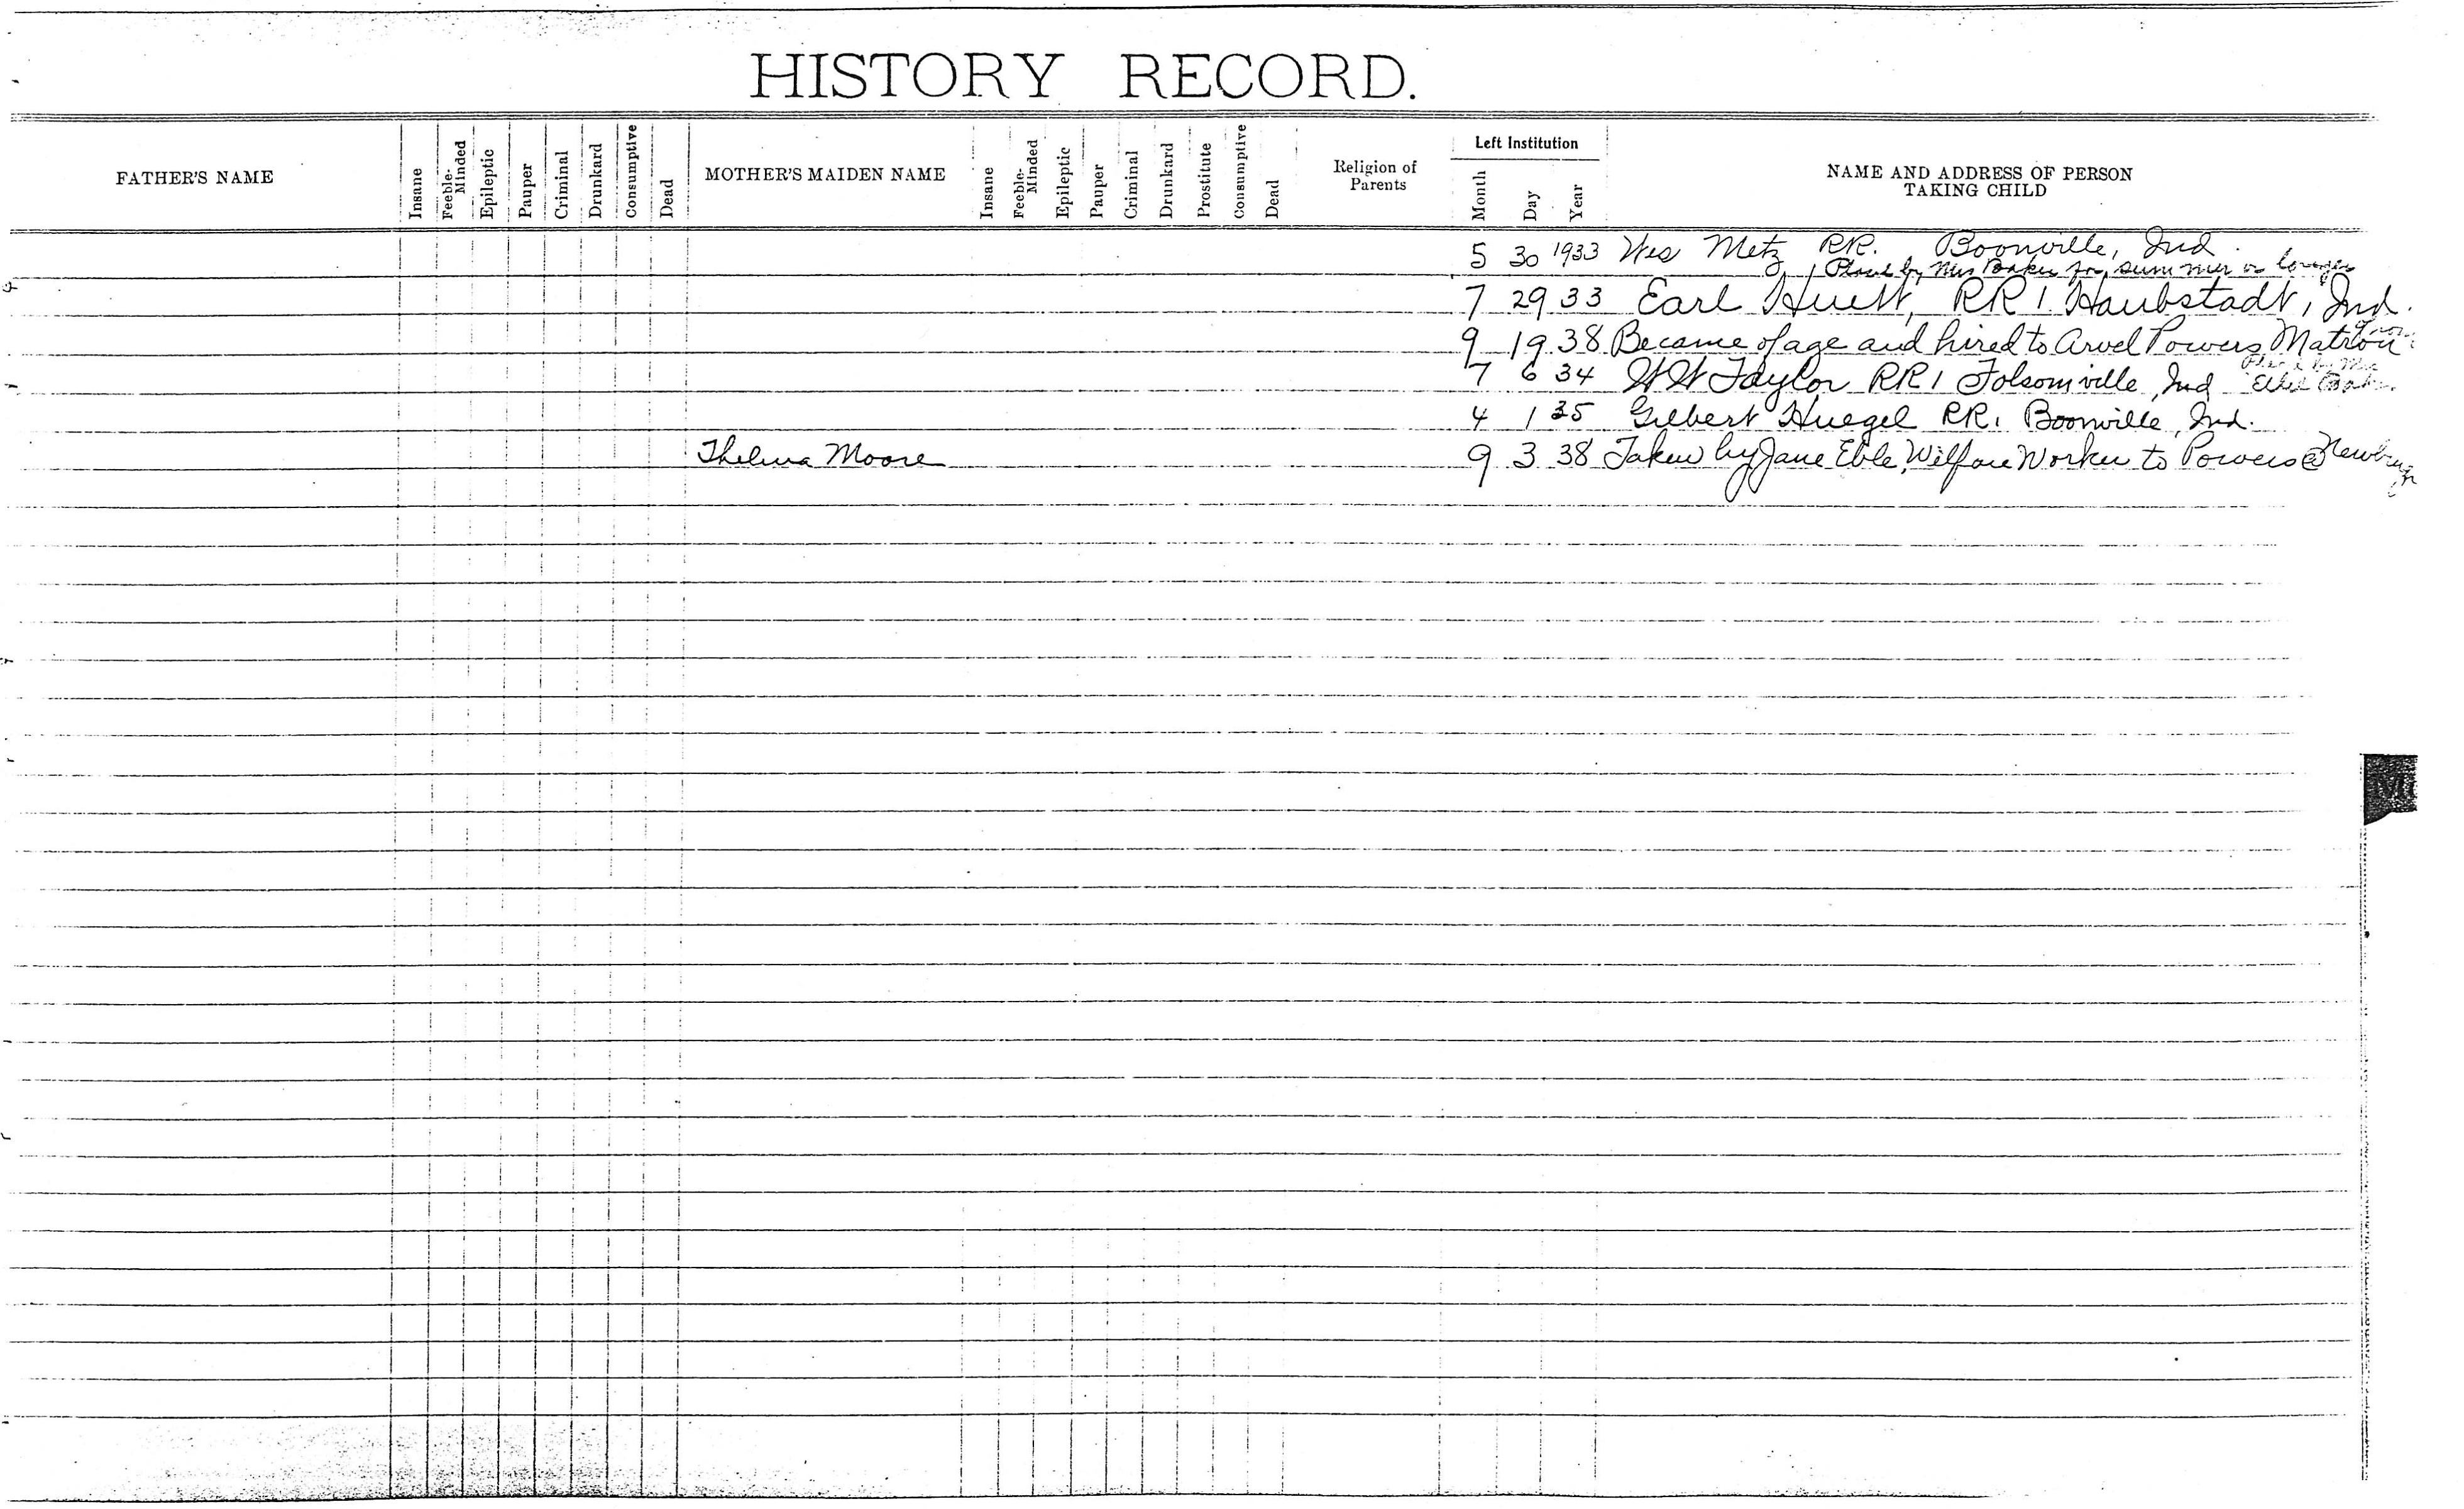 HISTORY RECORD.
FATHER'S NAME
Insane
Feeble-Minded
Epileptic
Pauper
Criminal
Drunkard
Consumptive
Dead
MOTHER'S MAIDEN NAME
Insane
Feeble-Minded
Epileptic
Pauper
Criminal
Drunkard
Prostitute
Consumptive
Dead
Religion of
Parents
Left Institution
Month
Day
Year
NAME AND ADDRESS OF PERSON
TAKING CHILD
5 30 1933 Wes Metz RR. Boonville, Ind.
Placed by Mrs Baker for summer or longer
7 29 33 Earl Huett, RR 1. Haubstadt, Ind.
9 19 38 Became of age and hired to Arvel Powers Matron
7 6 34 W W Taylor RR 1 Folsomville, Ind
4 1 35 Gilbert Huegel RR. Boonville, Ind.
Thelma Moore 9 3 38 Taken by Jane Eble, Welfare Worker to Powers @ Newburgh